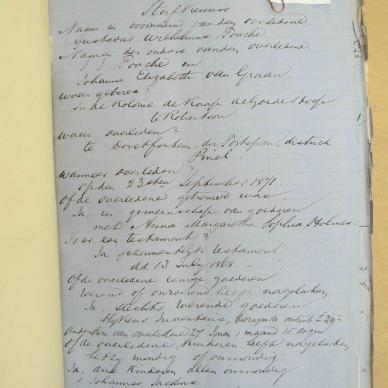 Sterfkennis
Naam en voornaam van den overledene
Gustavus Wilhelmus Fouche
Namen der ouders van den overledene
Fouche en
Johanna Elizabeth van Graan
waar geboren?
in de Kolonie de Kaap de Goede Hoop
te Robertson
waar overleden?
te Dorstfontein, district
Pniel
wanneer overleden?
op den 23sten September 1871
of de overledene getrouwd was
Ja, in gemeenschap van goederen
met Anna Margaretha Sophia Holmes
is er een testament?
Ja gezamentlijk testament
d.d 13 July 1868
of de overledene eenige goederen
roerend of onroerend heeft nagelaten
Ja slechts roerende goederen
volgens inventaris,
Ouderdom van overledene 27 Jaren 1 maand 15 dagen
of de overledene kinderen heeft nagelaten
hetzy mondig of onmondig
Ja, drie kinderen allen onmondig
1 Johannes